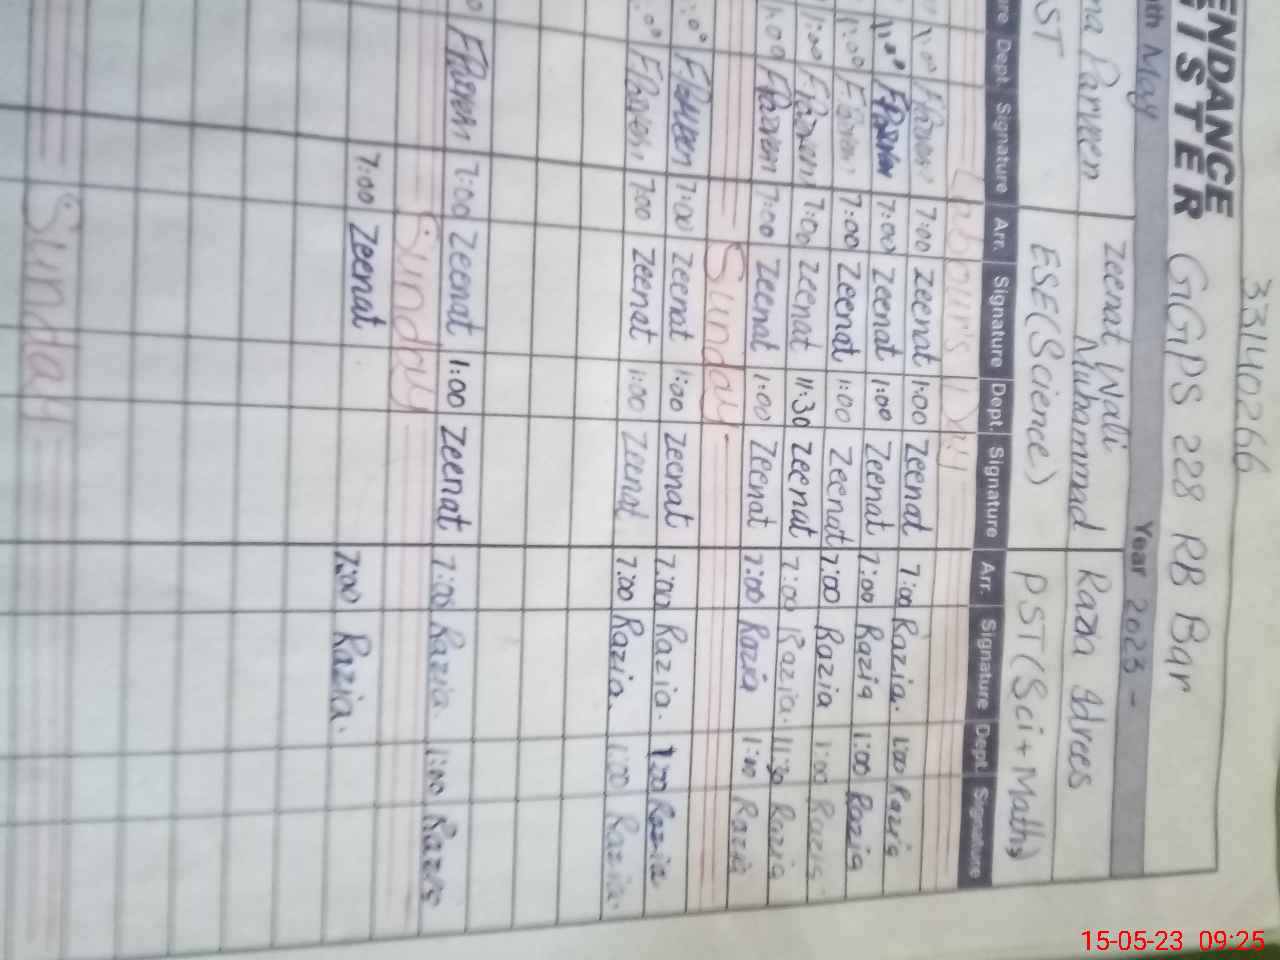 33140266
ENDANCE
ISTER GGPS 228 RB Bar
nth May Year 2023 -
na Parveen Zeenat Wali Muhammad Razia Idrees
ST ESE(Science) PST(Sci+Math)
ure Dept. Signature Arr. Signature Dept. Signature Arr. Signature Dept. Signature
Labour's Day
1:00 7:00 Zeenat 1:00 Zeenat 7:00 Razia. 1:00 Razia
1:00 7:00 Zeenat 1:00 Zeenat 7:00 Razia 1:00 Razia
1:00 7:00 Zeenat 1:00 Zeenat 7:00 Razia 1:00 Razia
1:00 7:00 Zeenat 11:30 Zeenat 7:00 Razia. 11:30 Razia
1:00 7:00 Zeenat 1:00 Zeenat 7:00 Razia 1:00 Razia
Sunday
7:00 Zeenat 1:00 Zeenat 7:00 Razia. 1:00 Razia
7:00 Zeenat 1:00 Zeenat 7:00 Razia. 1:00 Razia.
7:00 Zeenat 1:00 Zeenat 7:00 Razia. 1:00
Sunday
7:00 Zeenat 7:00 Razia.
Sunday
15-05-23 09:25